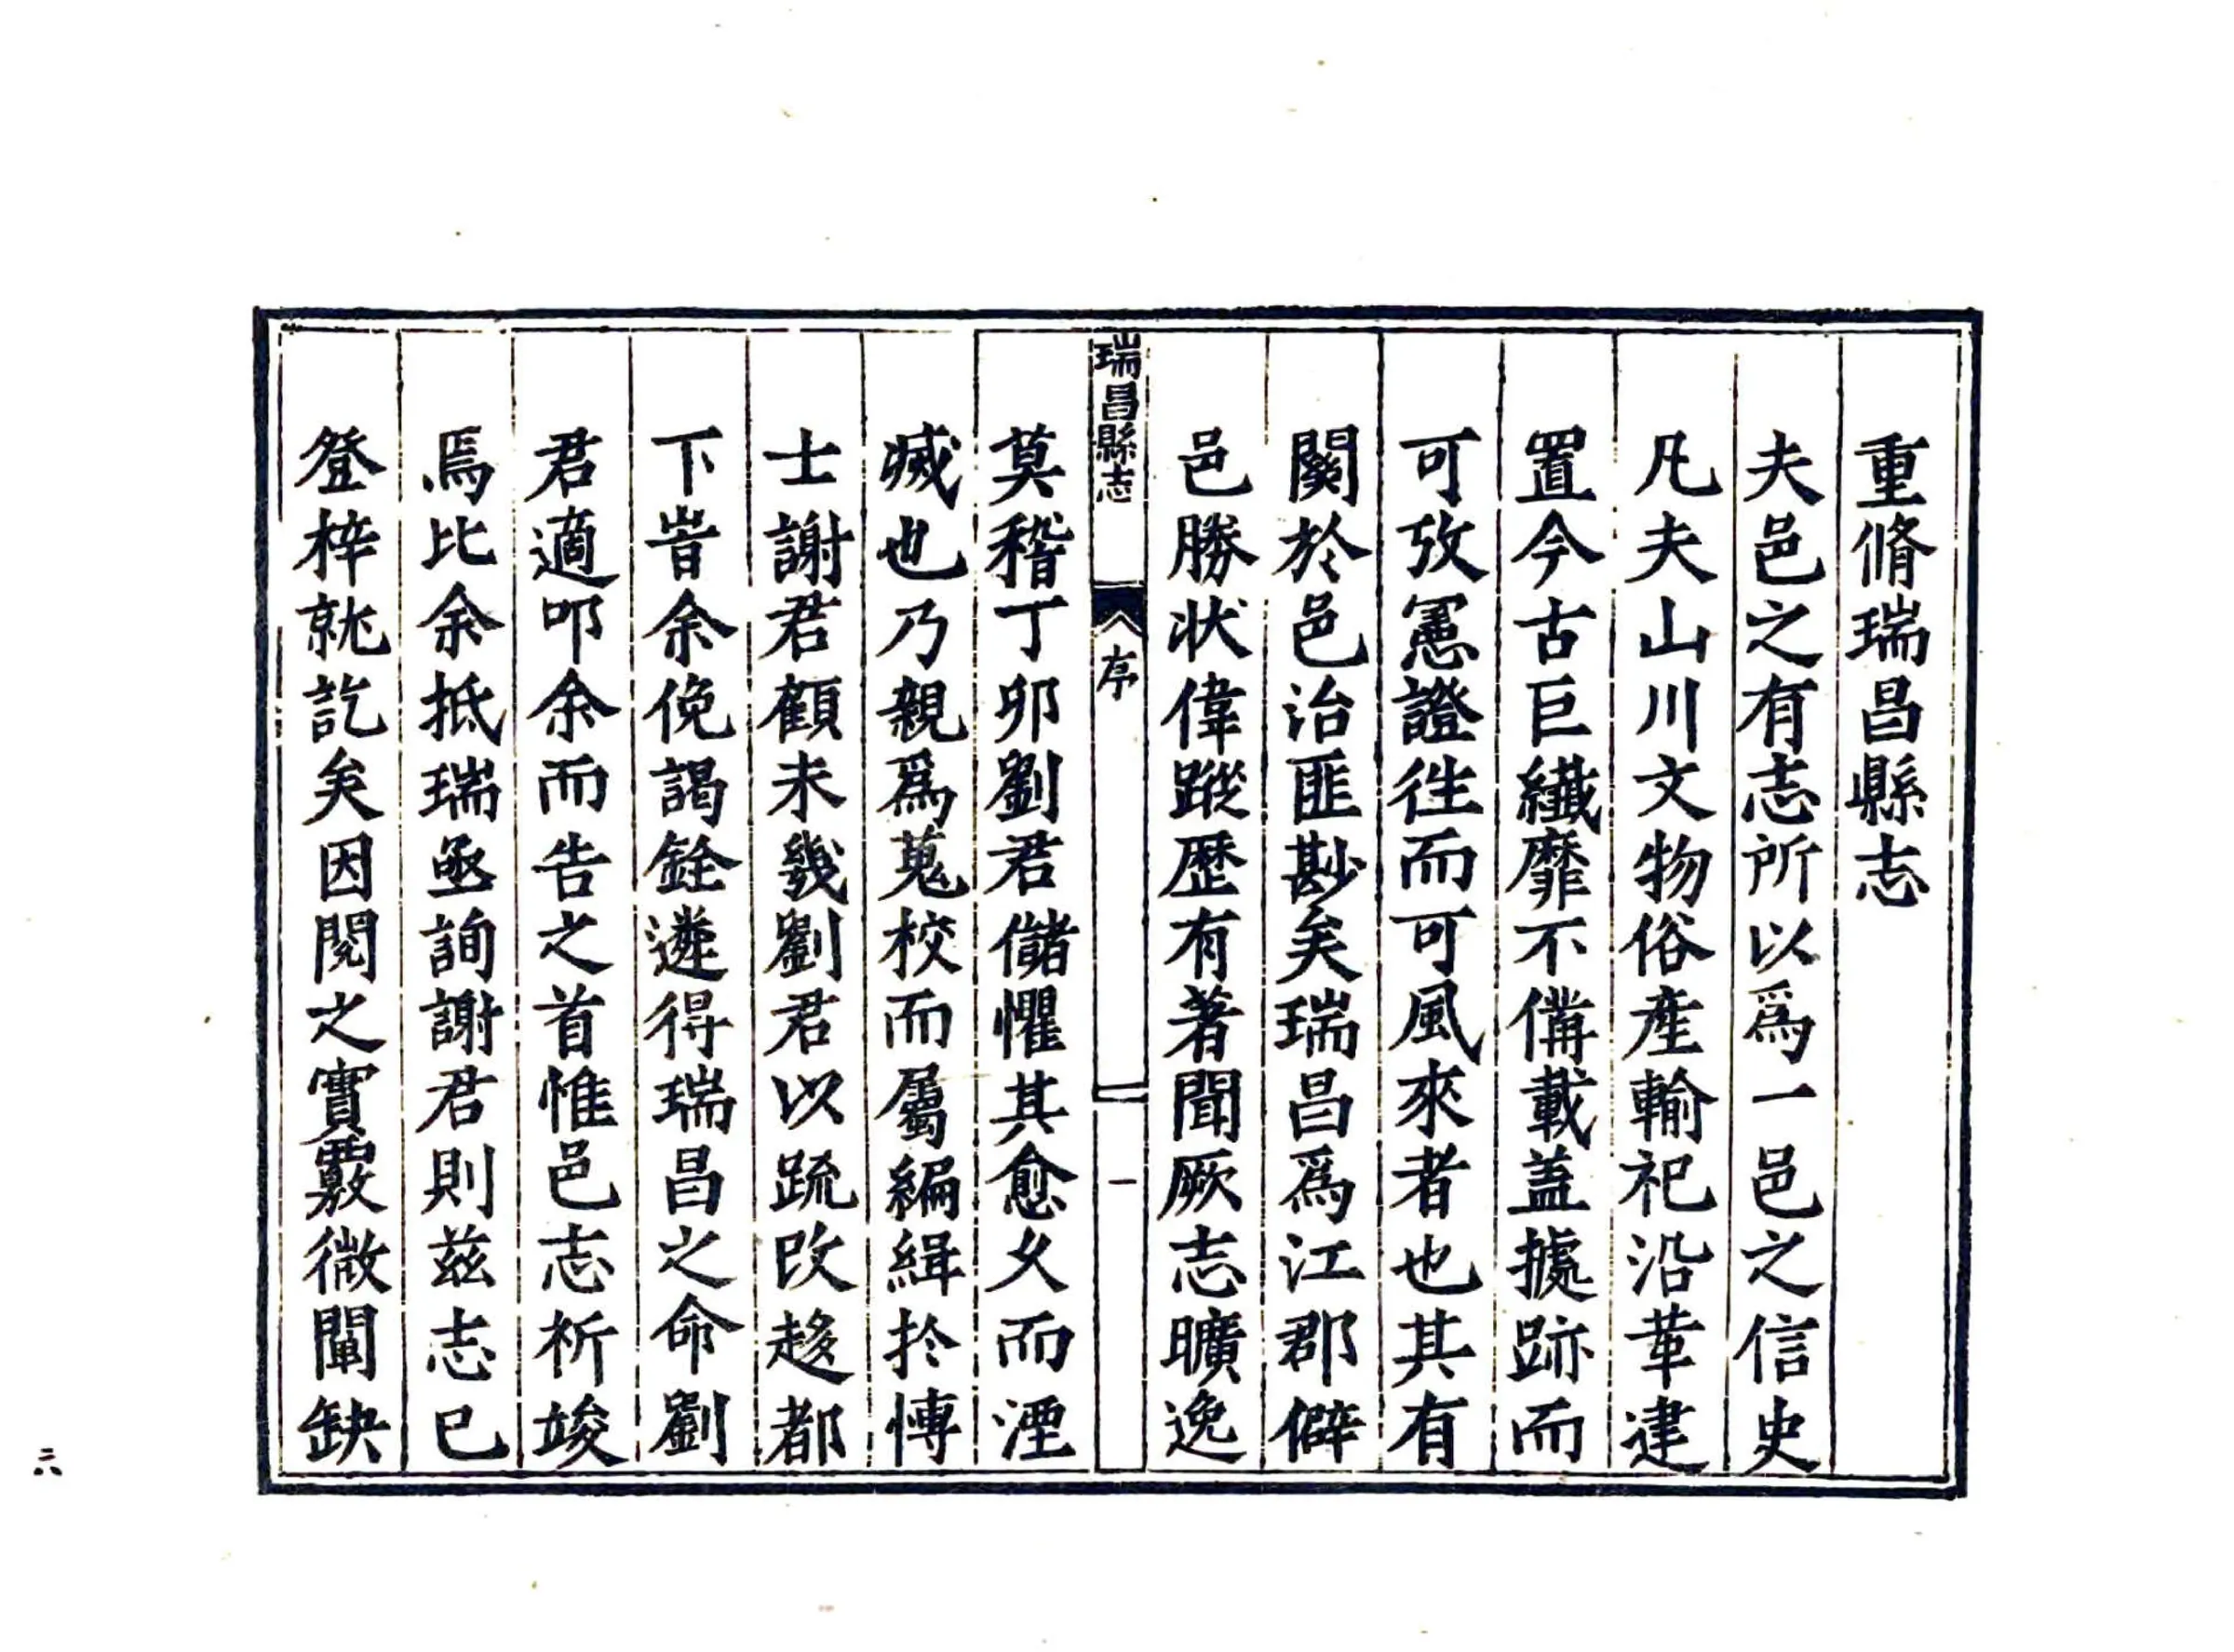 重脩瑞昌縣志
夫邑之有志所以爲一邑之信史
凡夫山川文物俗產輸祀沿革建
置今古巨纖靡不備載蓋據跡而
可攷寔證往而可風來者也其有
關於邑治匪尠矣瑞昌爲江郡僻
邑勝狀偉蹤歷有著聞厥志曠逸
瑞昌縣志
序
一
莫稽丁卯劉君儲懼其愈久而湮
滅也乃親爲蒐校而屬編緝於博
士謝君顧未幾劉君以䟽改趍都
下旹余俛謁銓遴得瑞昌之命劉
君適叩余而告之首惟邑志祈竣
焉比余抵瑞亟詢謝君則茲志已
登梓就訖矣因閱之實覈微闡缺
二六